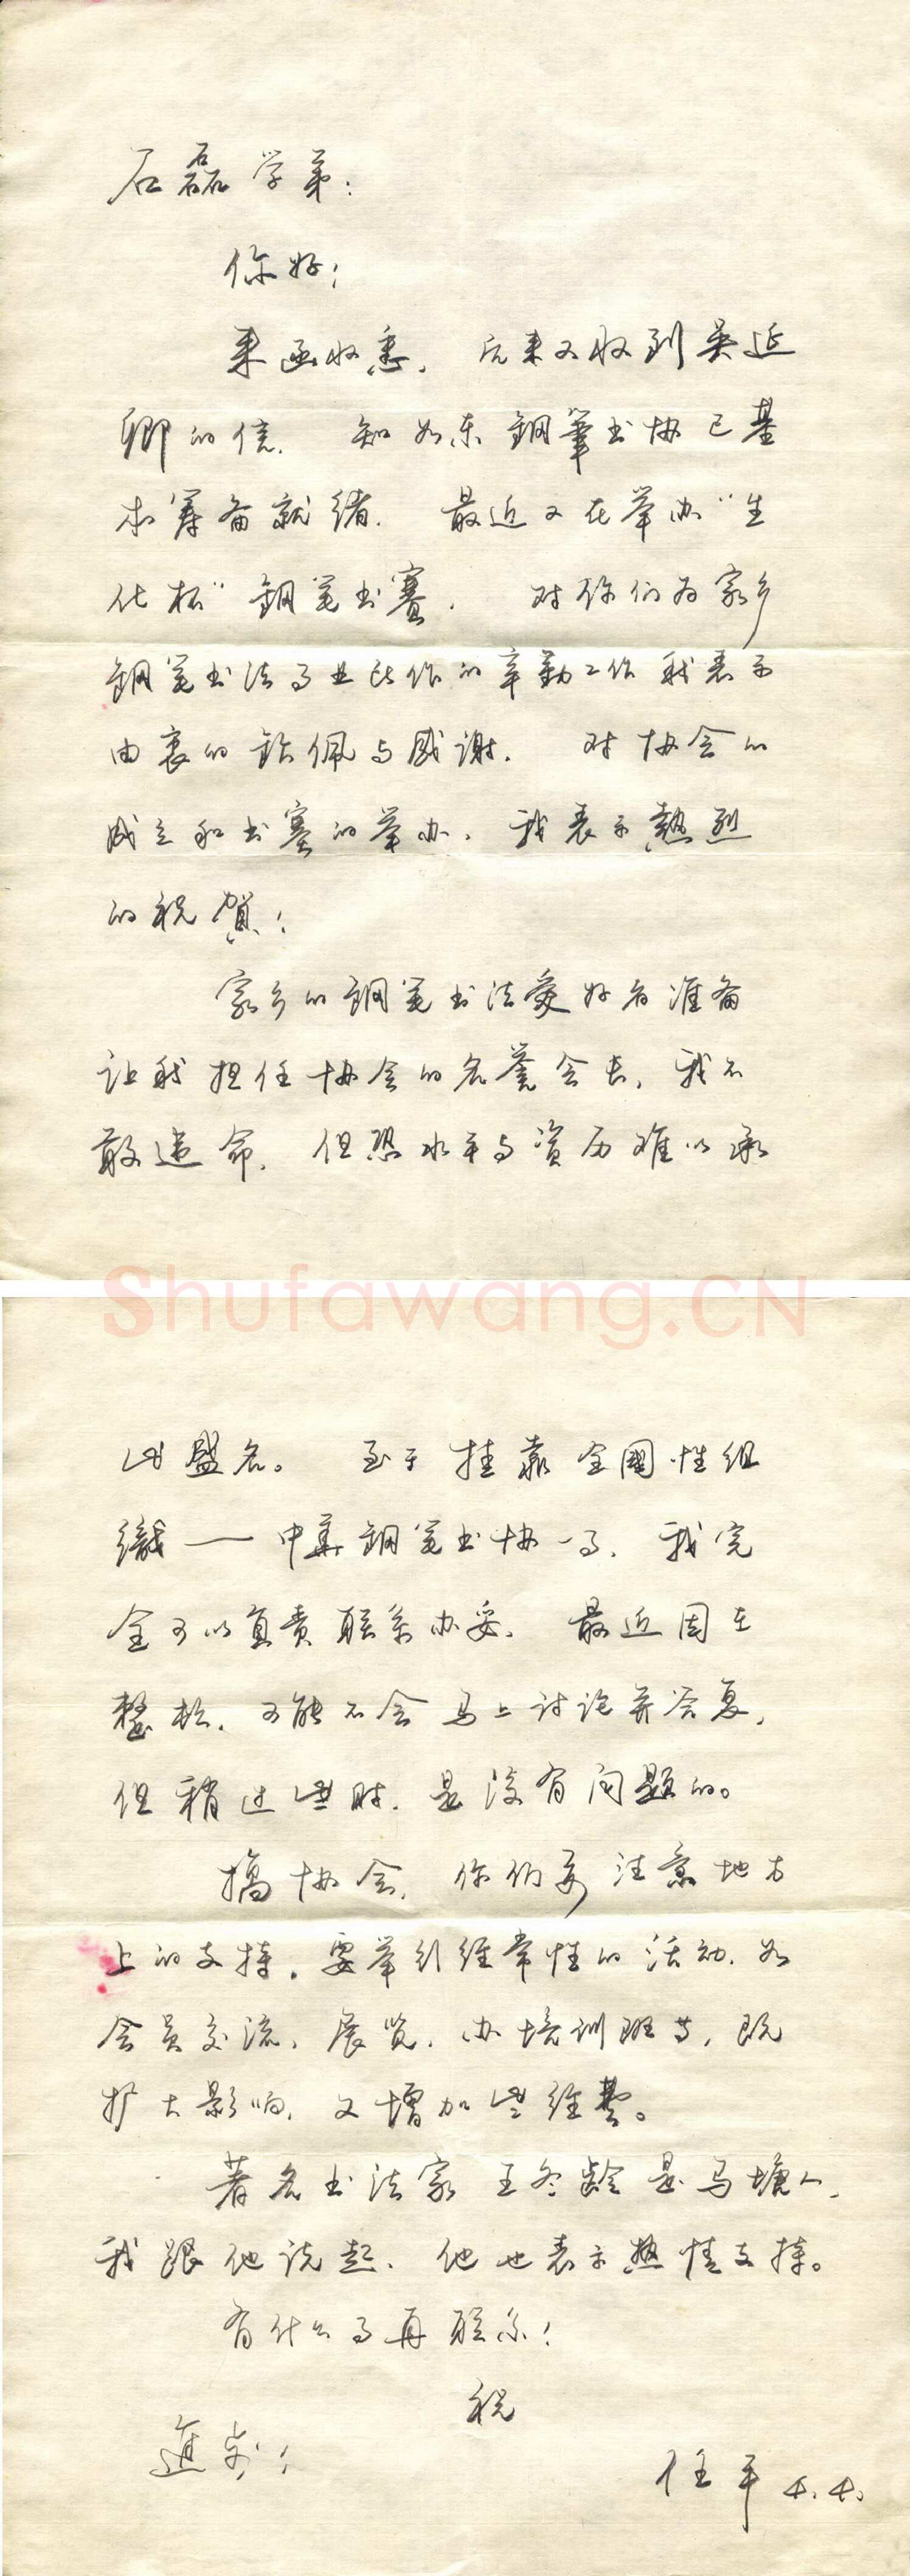 石磊学弟：
你好！
来函收悉，后来又收到吴延
卿的信，知如东鋼筆书协已基
本筹备就绪，最近又在举办“生
化杯”鋼笔书赛，对你们为家乡
鋼笔书法事业所作的辛勤工作我表示
由衷的钦佩与感谢，对协会的
成立和书赛的举办，我表示熱烈
的祝賀！
家乡的鋼笔书法爱好者准备
让我担任协会的名誉会长，我不
敢造命，但恐水平与资历难以承
Shufawang.CN
此盛名。至于挂靠全國性组
織——中華鋼笔书协一事，我完
全可以負责联系办妥，最近因在
整松，可能不会马上讨论并答复，
但稍过些时，是没有问题的。
搞协会，你们要注意地方
上的支持，要举行经常性的活动，如
会员交流、展览、办培训班等，既
扩大影响，又增加些经费。
著名书法家王冬龄是马塘人，
我跟他说起，他也表示热情支持。
有什么事再联系！
祝
進步！
任平 4.4.